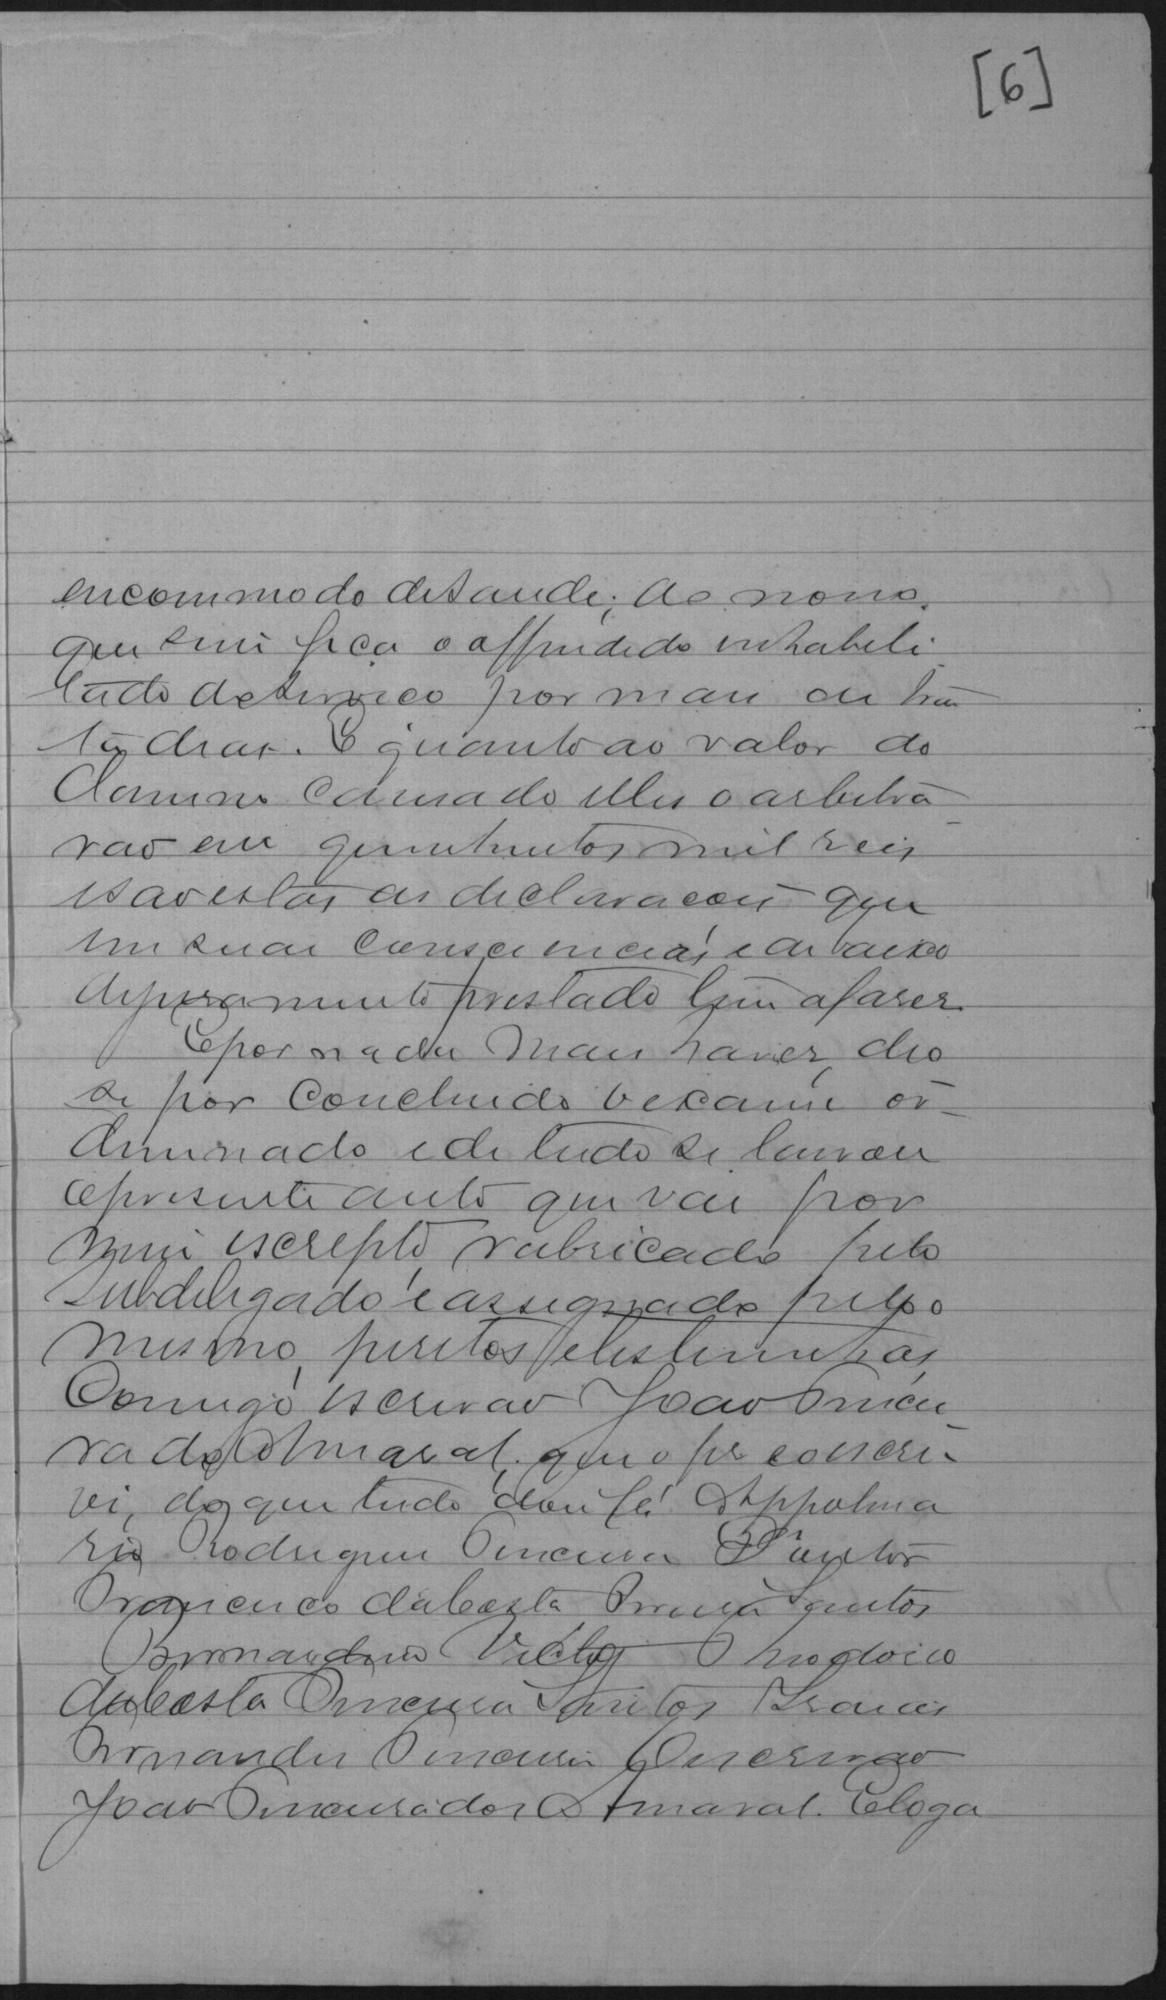 [6]
encommodo de saude; ao nono.
que sim fica o offendido inhabeli
tado deserviço por mais de trin
ta dias. E quanto ao valor do
damno causado elles o arbitrá
rao em quinhentos mil reis
esao estas as declaracois que
em suas consciencias, e debaixo
do juramento prestado tem afaser.
E por nada mais haver, deo
se por concluido oexame or-
denado e de tudo se lavrou
opresente auto que vai por
mim escripto, rubricado pelo
subdelegado e assignado pelo
mesmo, peritos etestemunhas,
Comigo escrivao Joao
do Amaral, que o fis escrevi
vi, do que tudo dou fé. Appolina
rio Rodrigues Santos
Francisco da Costa Santos
Bernardino
da Costa Santos
Fernandes O escrivao
Joao Amaral. E logo